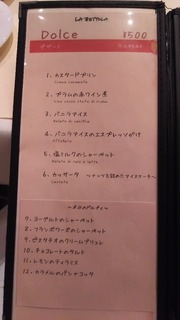 LA BETTOLA
Dolce ¥500
デザート
1. カスタードプリン
Crema caramellata
2. プラムの赤ワイン煮
3. バニラアイス
Gelato di vaniglia
4. バニラアイスのエスプレッソがけ
Affogato
5. 塩ミルクのシャーベット
6. カッサータ 〜ナッツを詰めたアイスケーキ〜
Cassata
7. ヨーグルトのシャーベット
8. フランボワーズのシャーベット
9. ピスタチオのクリームブリュレ
10. チョコレートのタルト
11. レモンのティラミス
12. カラメルのパンナコッタ